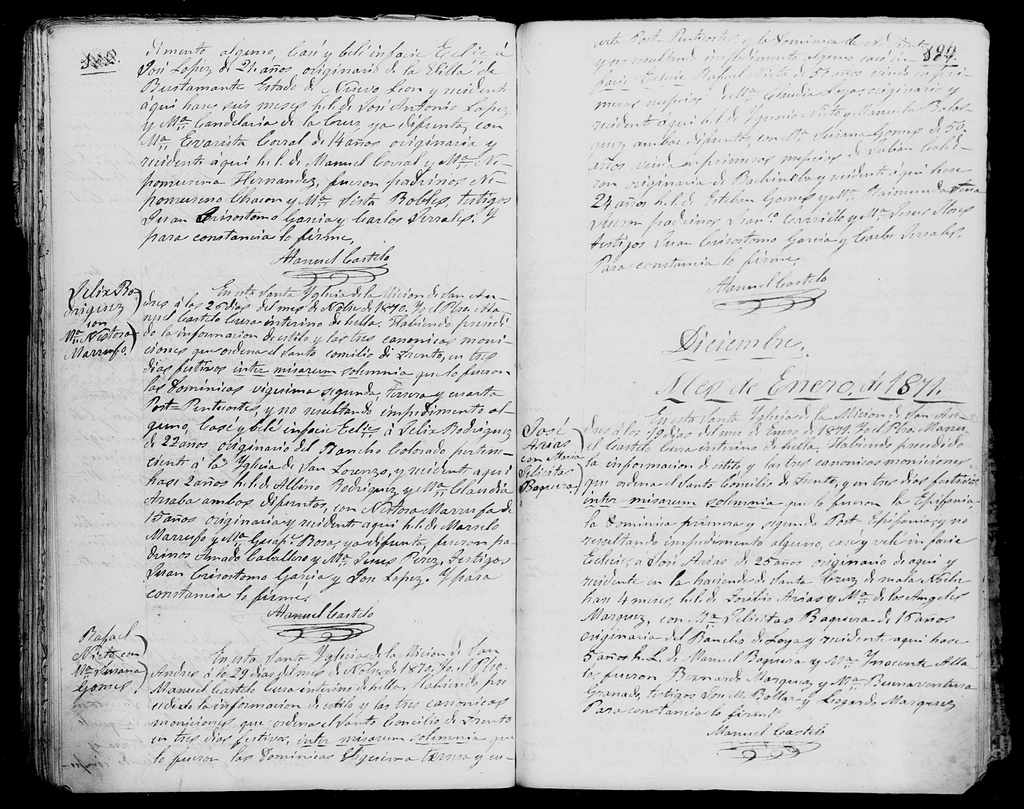 dimento alguno, Casé y belé infacie Eclȩ à
José Lopez de 24 años originario de la Villa de
Bustamante Estado de Nuevo Leon y recidente
aqui hase seis meses h.l. de José Antonio Lopez,
y Mª Candelaria de la Cruz ya difunta, con
Mª Evarista Corral de 14 años originaria y
recidente aqui h.l. de Manuel Corral y Mª Ne-
pomucena Hernandez, fueron padrinos Ne-
pomuceno Chacon y Mª Sista Robles, testigos
Juan Crisostomo Garcia y Carlos Serrales. Y
para constancia lo firme,
Manuel Castelo
Felix Ro-
driguez
con
Mª Nestora
Marrufo.
En esta Santa Yglecia de la Micion de San An-
dres á los 26 dias del mes de Nobre de 1870. Yo el Pbro.
Castelo Cura interino de hella, Habiendo presedi-
do la informacion de estilo y las tres canonicas moni-
ciones que ordena el Santo Concilio de Trento, en tres
dias festivos inter misarum solemnia que lo fueron
las Dominicas vigesima segunda, tercera y cuarta
Post-Pentecostes, y no resultando impedimento al-
guno, Casé y belé infacie Eclȩ à Felix Rodriguez
de 22 años originario del Rancho Colorado pertene-
ciente á la Yglecia de San Lorenzo, y recidente aqui
hase 2 años h.l. de Albino Rodriguez y Mª Claudia
ambos difuntos, con Nestora Marrufo de
15 años originaria y recidente aqui h.l. de Marcelo
Marrufo y Mª Rosas ya difunta, fueron pa-
drinos Amado Caballero y Mª Jesus Perez, testigos
Juan Crisostomo Garcia y José Lopez. Y para
constancia lo firme.
Manuel Castelo
Rafael
Nieto con
Mª Susana
Gomes.
En esta Santa Yglecia de la Micion de San
Andres á los 29 dias del mes de Nobre de 1870. Yo el Pbro.
Manuel Castelo Cura interino de hella, Habiendo pre-
sedido la informacion de estilo y las tres canonicas
moniciones que ordena el Santo Concilio de Trento
en tres dias festivos, inter misarum solemnia que
lo fueron las Dominicas Vigesima tercera y cu-
arta Post-Pentecostes y la Dominica
y no resultando impedimento alguno casé
Rafael Nieto de 55 años viudo en pri-
meras nupcias de Mª Claudia originario y
recidente aqui h.l. de Nieto y Manuela
ambos difuntos, con Mª Susana Gomes de 50
años viuda en primeras nupcias de Julian
originaria de Bachiniba y recidente aqui hase
24 años h.l. de Esteban Gomes y Mª
fueron padrinos y Mª Jesus Flores
testigos Juan Crisostomo Garcia y Carlos Serrales.
Para constancia lo firme,
Manuel Castelo
Diciembre.
Mes de Enero de 1871.
José
Arias
con Maria
Felicitas
Baquera
En esta Santa Yglecia de la Micion de San An-
dres á los dias del mes de Enero de 1871. Yo el Pbro. Manu-
el Castelo Cura interino de hella, Habiendo precedido
la informacion de estilo y las tres canonicas moniciones
que ordena el Santo Concilio de Trento, y en tres dias festivos
inter misarum solemnia que lo fueron la Epifania,
la Dominica primera y segunda Post-Epifania, y no
resultando impedimento alguno, casé y velé in facie
Eclecia, a José Arias de 25 años originario de aqui y
recidente en la hacienda de Santa Cruz de mata
hase 4 meses, h.l. de Eusebio Arias y Mª de los Angeles
Marquez, con Mª Felicitas Baquera de 15 años
originaria del Rancho de Loya y recidente aqui hase
5 años h.l. de Manuel Baquera y Mª Ynocente
fueron Bernardo Marquez y Mª Buenaventura
Granado, testigos José M. y Leogardo Marquez
Para constancia lo firmé
Manuel Castelo